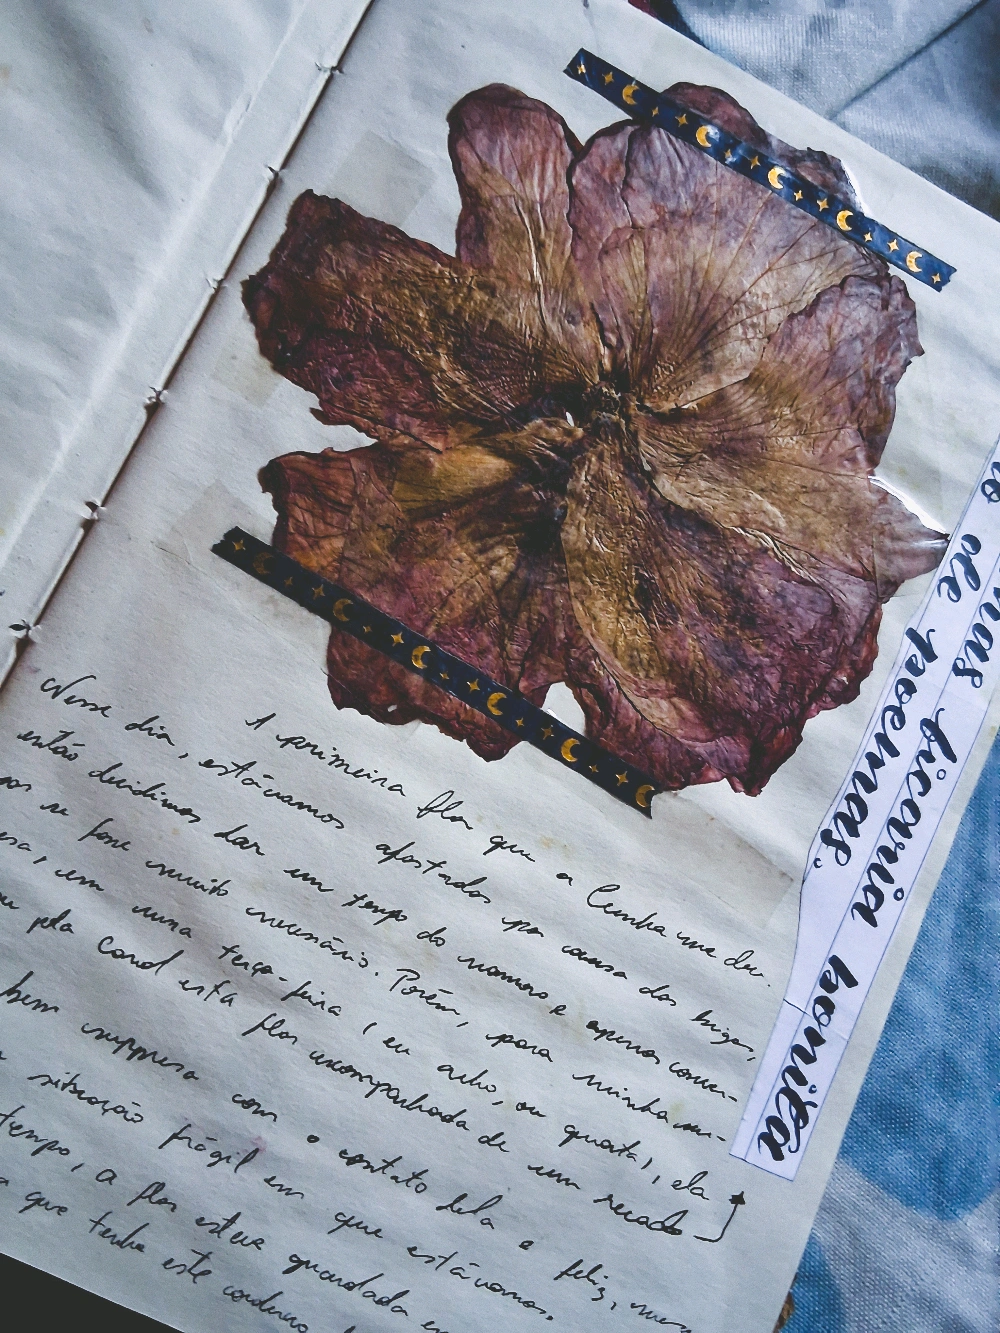 A primeira flor que a Cunha me deu.
Nesse dia, estávamos afastados por causa das brigas,
então decidimos dar um tempo do namoro e apenas conver-
se fosse muito necessário. Porém, para minha sur-
em uma terça-feira (eu acho, ou quarta), ela
pela Carol esta flor acompanhada de um recado
bem surpreso com o contato dela e feliz, mesmo
situação frágil em que estávamos.
tempo, a flor esteve guardada em
que tenho este caderno
de poemas.
mas bicaria bonita